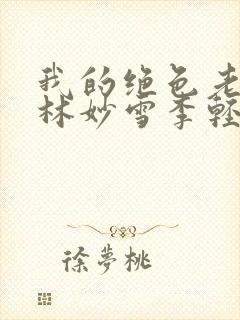 我的绝色老
林妙雪季轻
徐夢桃